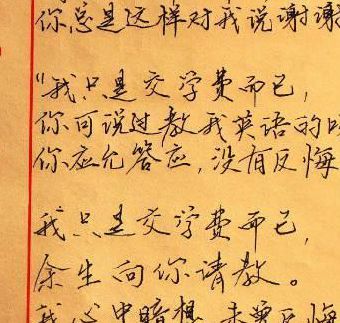 你总是这样对我说谢谢
"我只是交学费而已,
你可说过教我英语的
你应允答应,没有反悔
我只是交学费而已,
余生向你请教。
我心中暗想